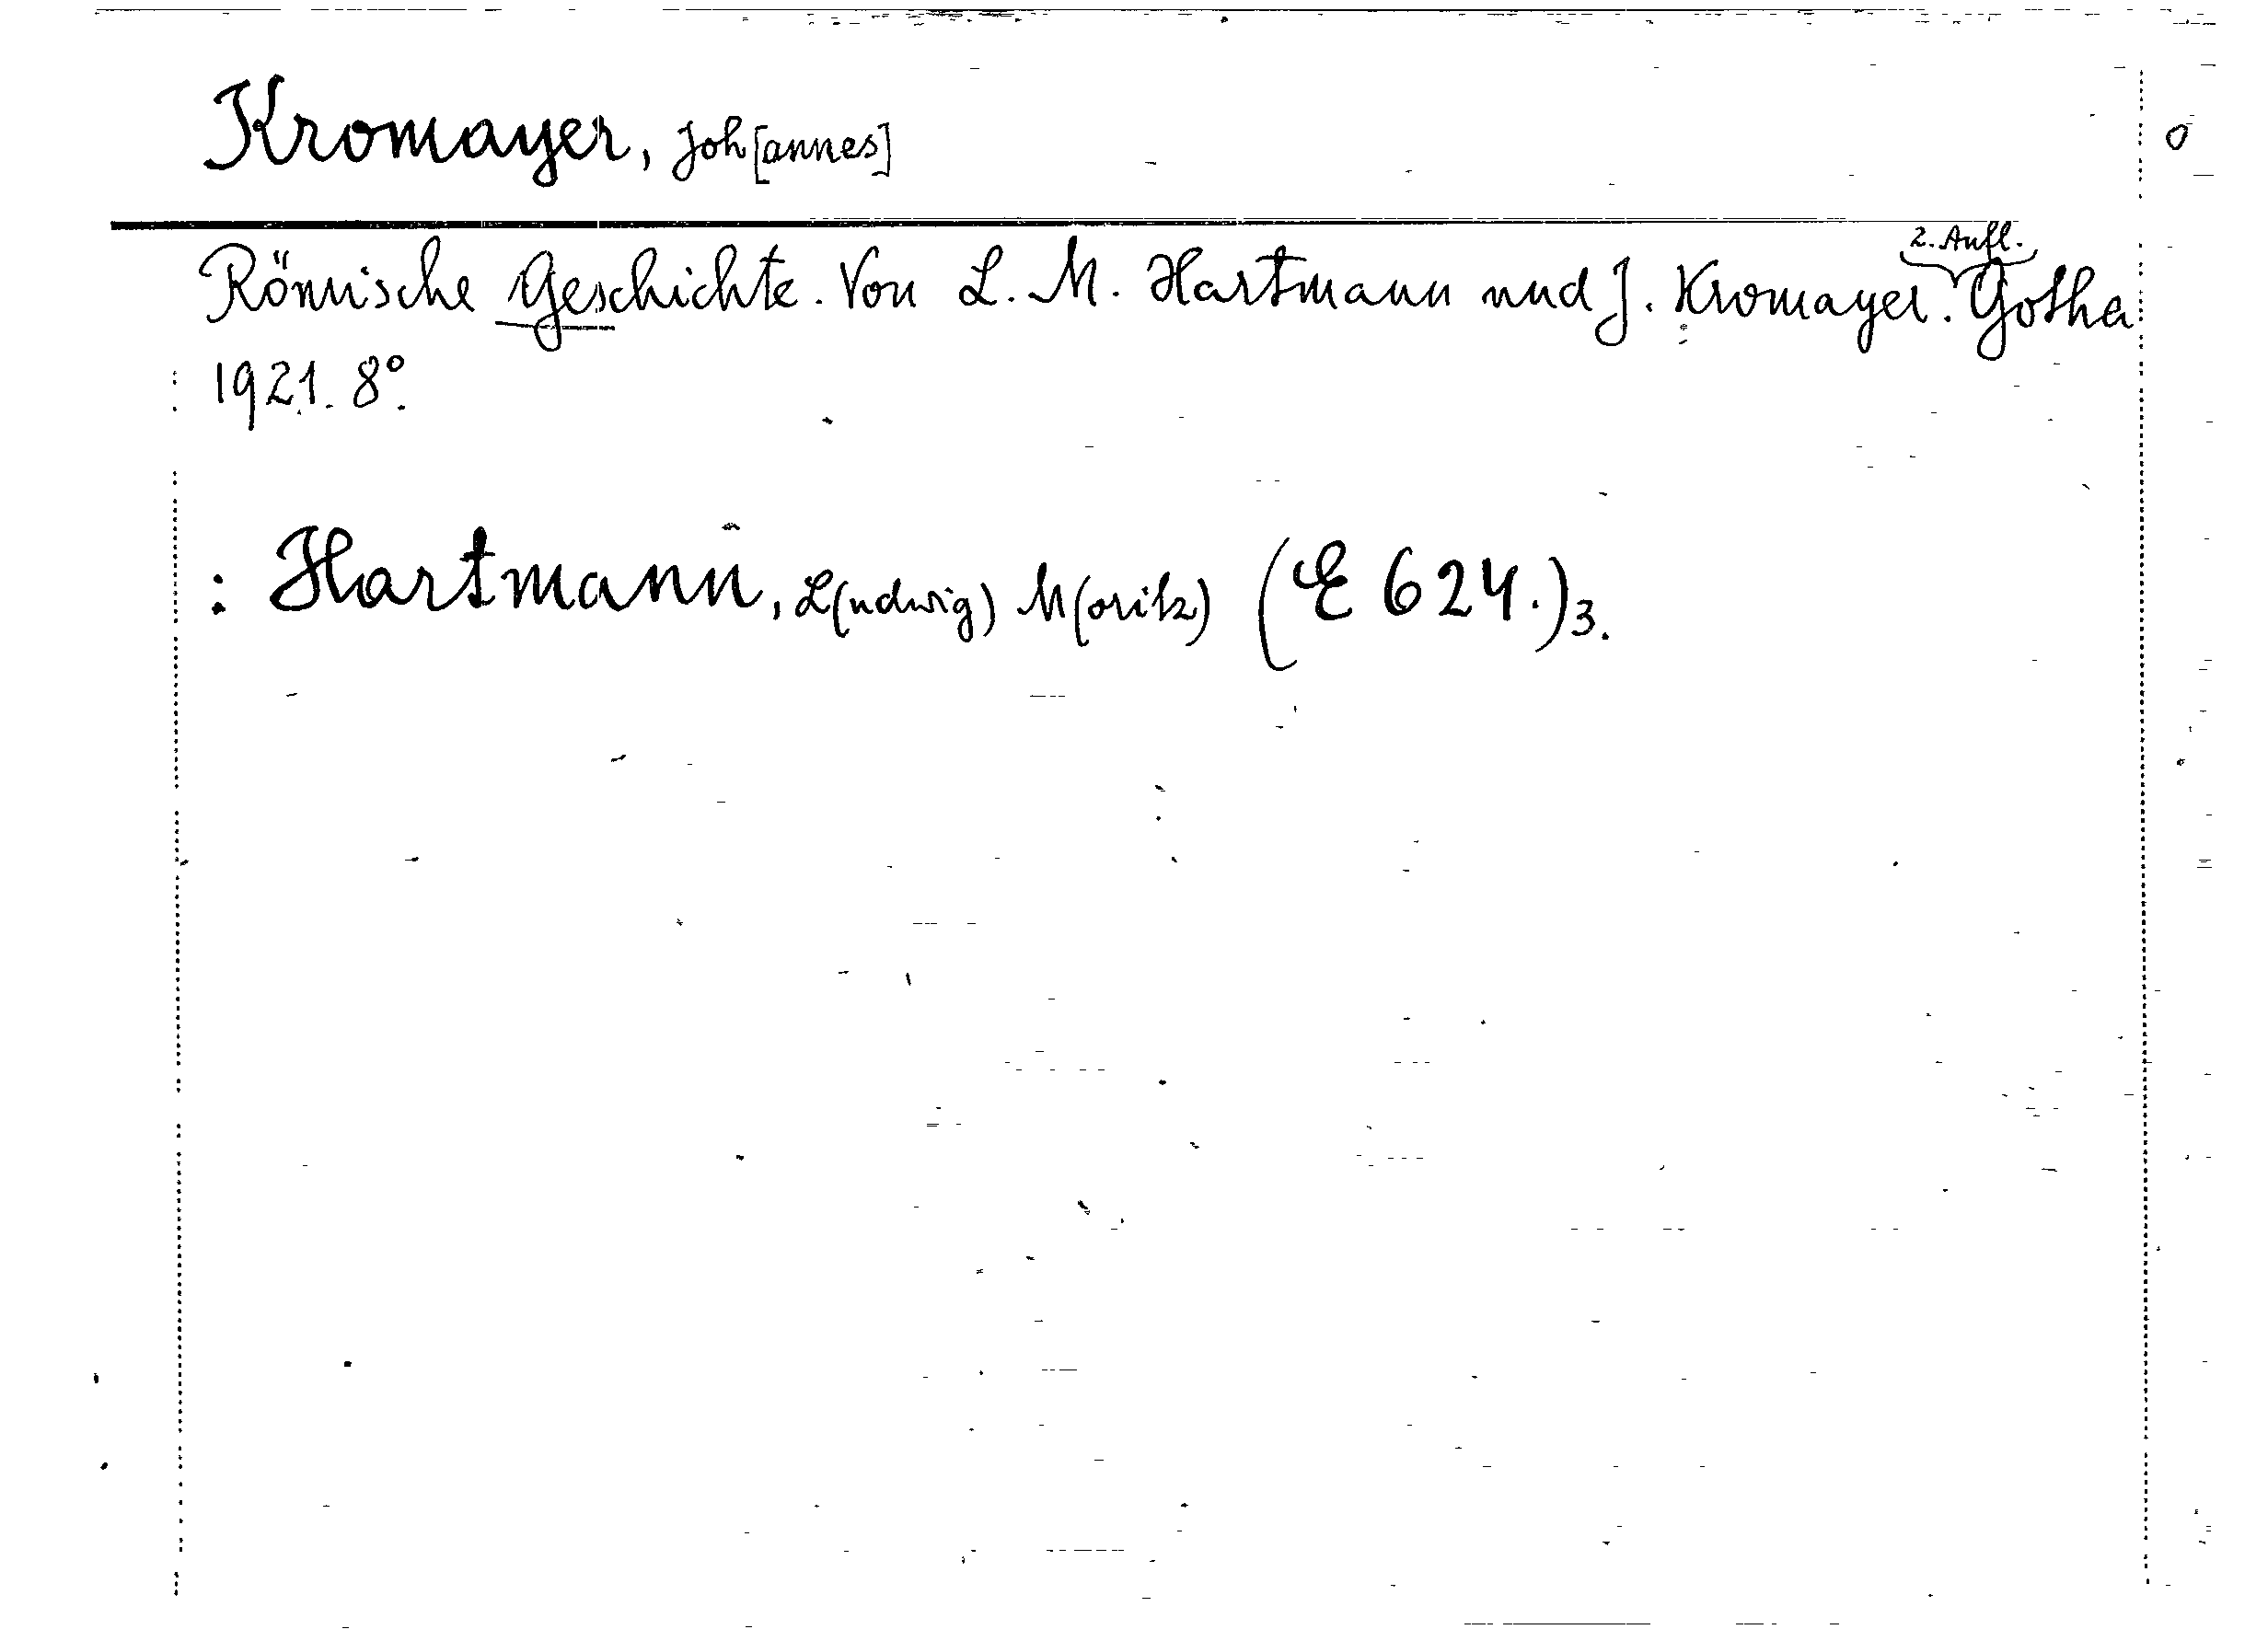 Kromayer, Joh[annes]
2. Aufl.
Römische Geschichte. Von L. M. Hartmann und J. Kromayer. Gotha
1921. 8°.
: Hartmann, L(udwig) M(oritz) (E 624.)3.